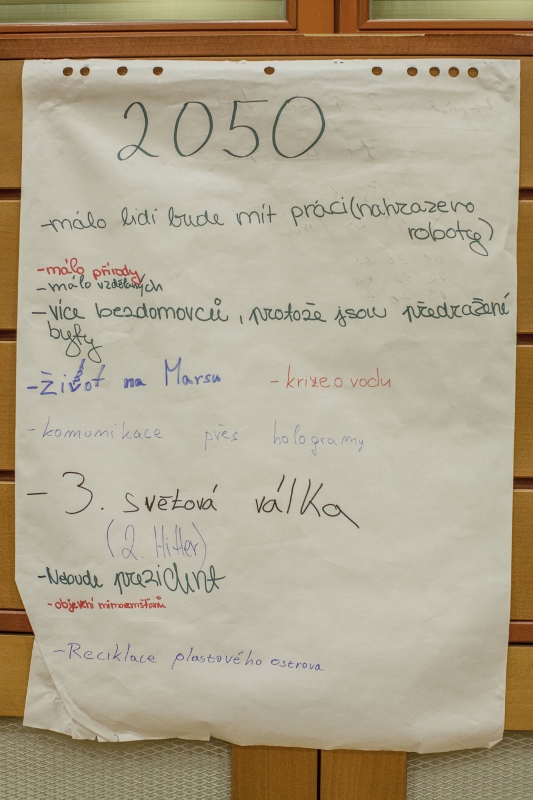 2050
-málo lidí bude mít práci(nahrazeno
roboty)
-málo přírody
-málo vzdělaných
-více bezdomovců, protože jsou předražené
byty
-Život na Marsu -krize o vodu
-komunikace přes hologramy
-3. světová válka
(2. Hitler)
-Nebude prezident
-objevení mimozemšťanů
-Reciklace plastového ostrova